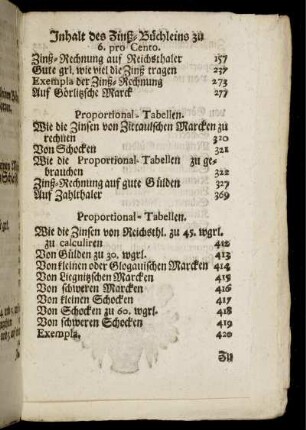 Inhalt des Zinß-Büchleins zu
6. pro Cento.
Zinß-Rechnung auf Reichsthaler 157
Gute grl. wie viel die Zinß tragen
Exempla der Zinß-Rechnung 273
Auf Görlitzsche Marck 277
Proportional-Tabellen.
Wie die Zinsen von Zittauischen Marcken zu
rechnen 310
Von Schocken 321
Wie die Proportional-Tabellen zu ge-
brauchen 322
Zinß-Rechnung auf gute Gülden 327
Auf Zahlthaler 369
Proportional-Tabellen.
Wie die Zinsen von Reichsthl. zu 45. wgrl.
zu calculiren 412
Von Gülden zu 30. wgrl. 413
Von kleinen oder Glogauischen Marcken 414
Von Liegnitzschen Marcken 415
Von schweren Marcken 416
Von kleinen Schocken 417
Von Schocken zu 60. wgrl. 418
Von schweren Schocken 419
Exempla. 420
Zu